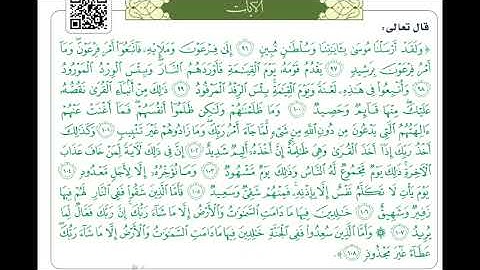 الآيات
قال تعالى:
﴿ وَلَقَدْ أَرْسَلْنَا مُوسَىٰ بِـَٔايَـٰتِنَا وَسُلْطَـٰنٍ مُّبِينٍ ٩٦ إِلَىٰ فِرْعَوْنَ وَمَلَإِيْهِۦ فَٱتَّبَعُوٓا۟ أَمْرَ فِرْعَوْنَ ۖ وَمَآ
أَمْرُ فِرْعَوْنَ بِرَشِيدٍ ٩٧ يَقْدُمُ قَوْمَهُۥ يَوْمَ ٱلْقِيَـٰمَةِ فَأَوْرَدَهُمُ ٱلنَّارَ ۖ وَبِئْسَ ٱلْوِرْدُ ٱلْمَوْرُودُ
٩٨ وَأُتْبِعُوا۟ فِى هَـٰذِهِۦ لَعْنَةً وَيَوْمَ ٱلْقِيَـٰمَةِ ۚ بِئْسَ ٱلرِّفْدُ ٱلْمَرْفُودُ ٩٩ ذَٰلِكَ مِنْ أَنۢبَآءِ ٱلْقُرَىٰ نَقُصُّهُۥ
عَلَيْكَ ۖ مِنْهَا قَآئِمٌ وَحَصِيدٌ ١٠٠ وَمَا ظَلَمْنَـٰهُمْ وَلَـٰكِن ظَلَمُوٓا۟ أَنفُسَهُمْ ۖ فَمَآ أَغْنَتْ عَنْهُمْ
ءَالِهَتُهُمُ ٱلَّتِى يَدْعُونَ مِن دُونِ ٱللَّهِ مِن شَىْءٍ لَّمَّا جَآءَ أَمْرُ رَبِّكَ ۖ وَمَا زَادُوهُمْ غَيْرَ تَتْبِيبٍ ١٠١ وَكَذَٰلِكَ
أَخْذُ رَبِّكَ إِذَآ أَخَذَ ٱلْقُرَىٰ وَهِىَ ظَـٰلِمَةٌ ۚ إِنَّ أَخْذَهُۥٓ أَلِيمٌ شَدِيدٌ ١٠٢ إِنَّ فِى ذَٰلِكَ لَـَٔايَةً لِّمَنْ خَافَ عَذَابَ
ٱلْـَٔاخِرَةِ ۚ ذَٰلِكَ يَوْمٌ مَّجْمُوعٌ لَّهُ ٱلنَّاسُ وَذَٰلِكَ يَوْمٌ مَّشْهُودٌ ١٠٣ وَمَا نُؤَخِّرُهُۥٓ إِلَّا لِأَجَلٍ مَّعْدُودٍ ١٠٤
يَوْمَ يَأْتِ لَا تَكَلَّمُ نَفْسٌ إِلَّا بِإِذْنِهِۦ ۚ فَمِنْهُمْ شَقِىٌّ وَسَعِيدٌ ١٠٥ فَأَمَّا ٱلَّذِينَ شَقُوا۟ فَفِى ٱلنَّارِ لَهُمْ فِيهَا
زَفِيرٌ وَشَهِيقٌ ١٠٦ خَـٰلِدِينَ فِيهَا مَا دَامَتِ ٱلسَّمَـٰوَٰتُ وَٱلْأَرْضُ إِلَّا مَا شَآءَ رَبُّكَ ۚ إِنَّ رَبَّكَ فَعَّالٌ لِّمَا
يُرِيدُ ١٠٧ ۞ وَأَمَّا ٱلَّذِينَ سُعِدُوا۟ فَفِى ٱلْجَنَّةِ خَـٰلِدِينَ فِيهَا مَا دَامَتِ ٱلسَّمَـٰوَٰتُ وَٱلْأَرْضُ إِلَّا مَا شَآءَ رَبُّكَ ۖ
عَطَآءً غَيْرَ مَجْذُوذٍ ١٠٨ ﴾